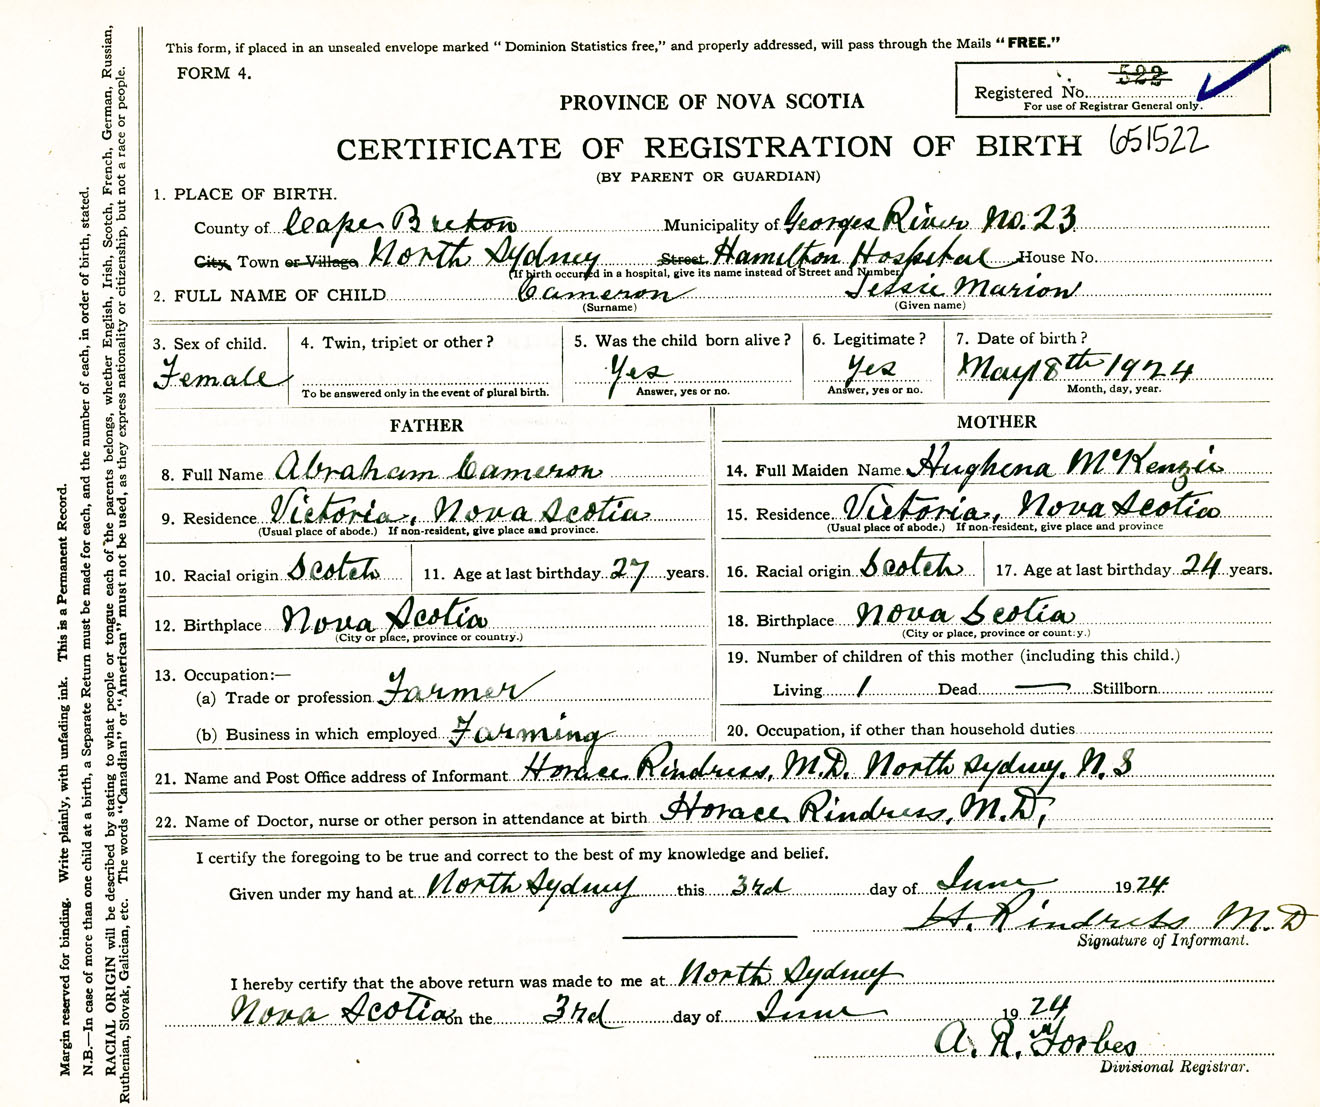 This form, if placed in an unsealed envelope marked “ Dominion Statistics free,” and properly addressed, will pass through the Mails “ FREE.”
FORM 4.
522
Registered No.
For use of Registrar General only.
PROVINCE OF NOVA SCOTIA
CERTIFICATE OF REGISTRATION OF BIRTH 651522
(BY PARENT OR GUARDIAN)
1. PLACE OF BIRTH.
County of Cape Breton Municipality of Georges River No. 23
City, Town or Village North Sydney Street Hamilton Hospital House No.
(If birth occurred in a hospital, give its name instead of Street and Number)
2. FULL NAME OF CHILD Cameron Jessie Marion
(Surname) (Given name)
3. Sex of child. 4. Twin, triplet or other? 5. Was the child born alive? 6. Legitimate? 7. Date of birth?
Female Yes Yes May 8th 1924
To be answered only in the event of plural birth. Answer, yes or no. Answer, yes or no. Month, day, year.
FATHER MOTHER
8. Full Name Abraham Cameron 14. Full Maiden Name Hughena McKenzie
9. Residence Victoria, Nova Scotia 15. Residence Victoria, Nova Scotia
(Usual place of abode.) If non-resident, give place and province. (Usual place of abode.) If non-resident, give place and province
10. Racial origin Scotch 11. Age at last birthday 27 years. 16. Racial origin Scotch 17. Age at last birthday 24 years.
12. Birthplace Nova Scotia 18. Birthplace Nova Scotia
(City or place, province or country.) (City or place, province or country.)
13. Occupation:— 19. Number of children of this mother (including this child.)
(a) Trade or profession Farmer Living 1 Dead — Stillborn
(b) Business in which employed Farming 20. Occupation, if other than household duties
21. Name and Post Office address of Informant Horace Rindress, M.D. North Sydney, N.S
22. Name of Doctor, nurse or other person in attendance at birth Horace Rindress, M.D,
I certify the foregoing to be true and correct to the best of my knowledge and belief.
Given under my hand at North Sydney this 3rd day of June 1924
H. Rindress M.D
Signature of Informant.
I hereby certify that the above return was made to me at North Sydney
Nova Scotia on the 3rd day of June 1924
A. R. Forbes
Divisional Registrar.
Margin reserved for binding. Write plainly, with unfading ink. This is a Permanent Record.
N.B.—In case of more than one child at a birth, a Separate Return must be made for each, and the number of each, in order of birth, stated.
RACIAL ORIGIN will be described by stating to what people or tongue each of the parents belongs, whether English, Irish, Scotch, French, German, Russian,
Ruthenian, Slovak, Galician, etc. The words “Canadian” or “American” must not be used, as they express nationality or citizenship, but not a race or people.